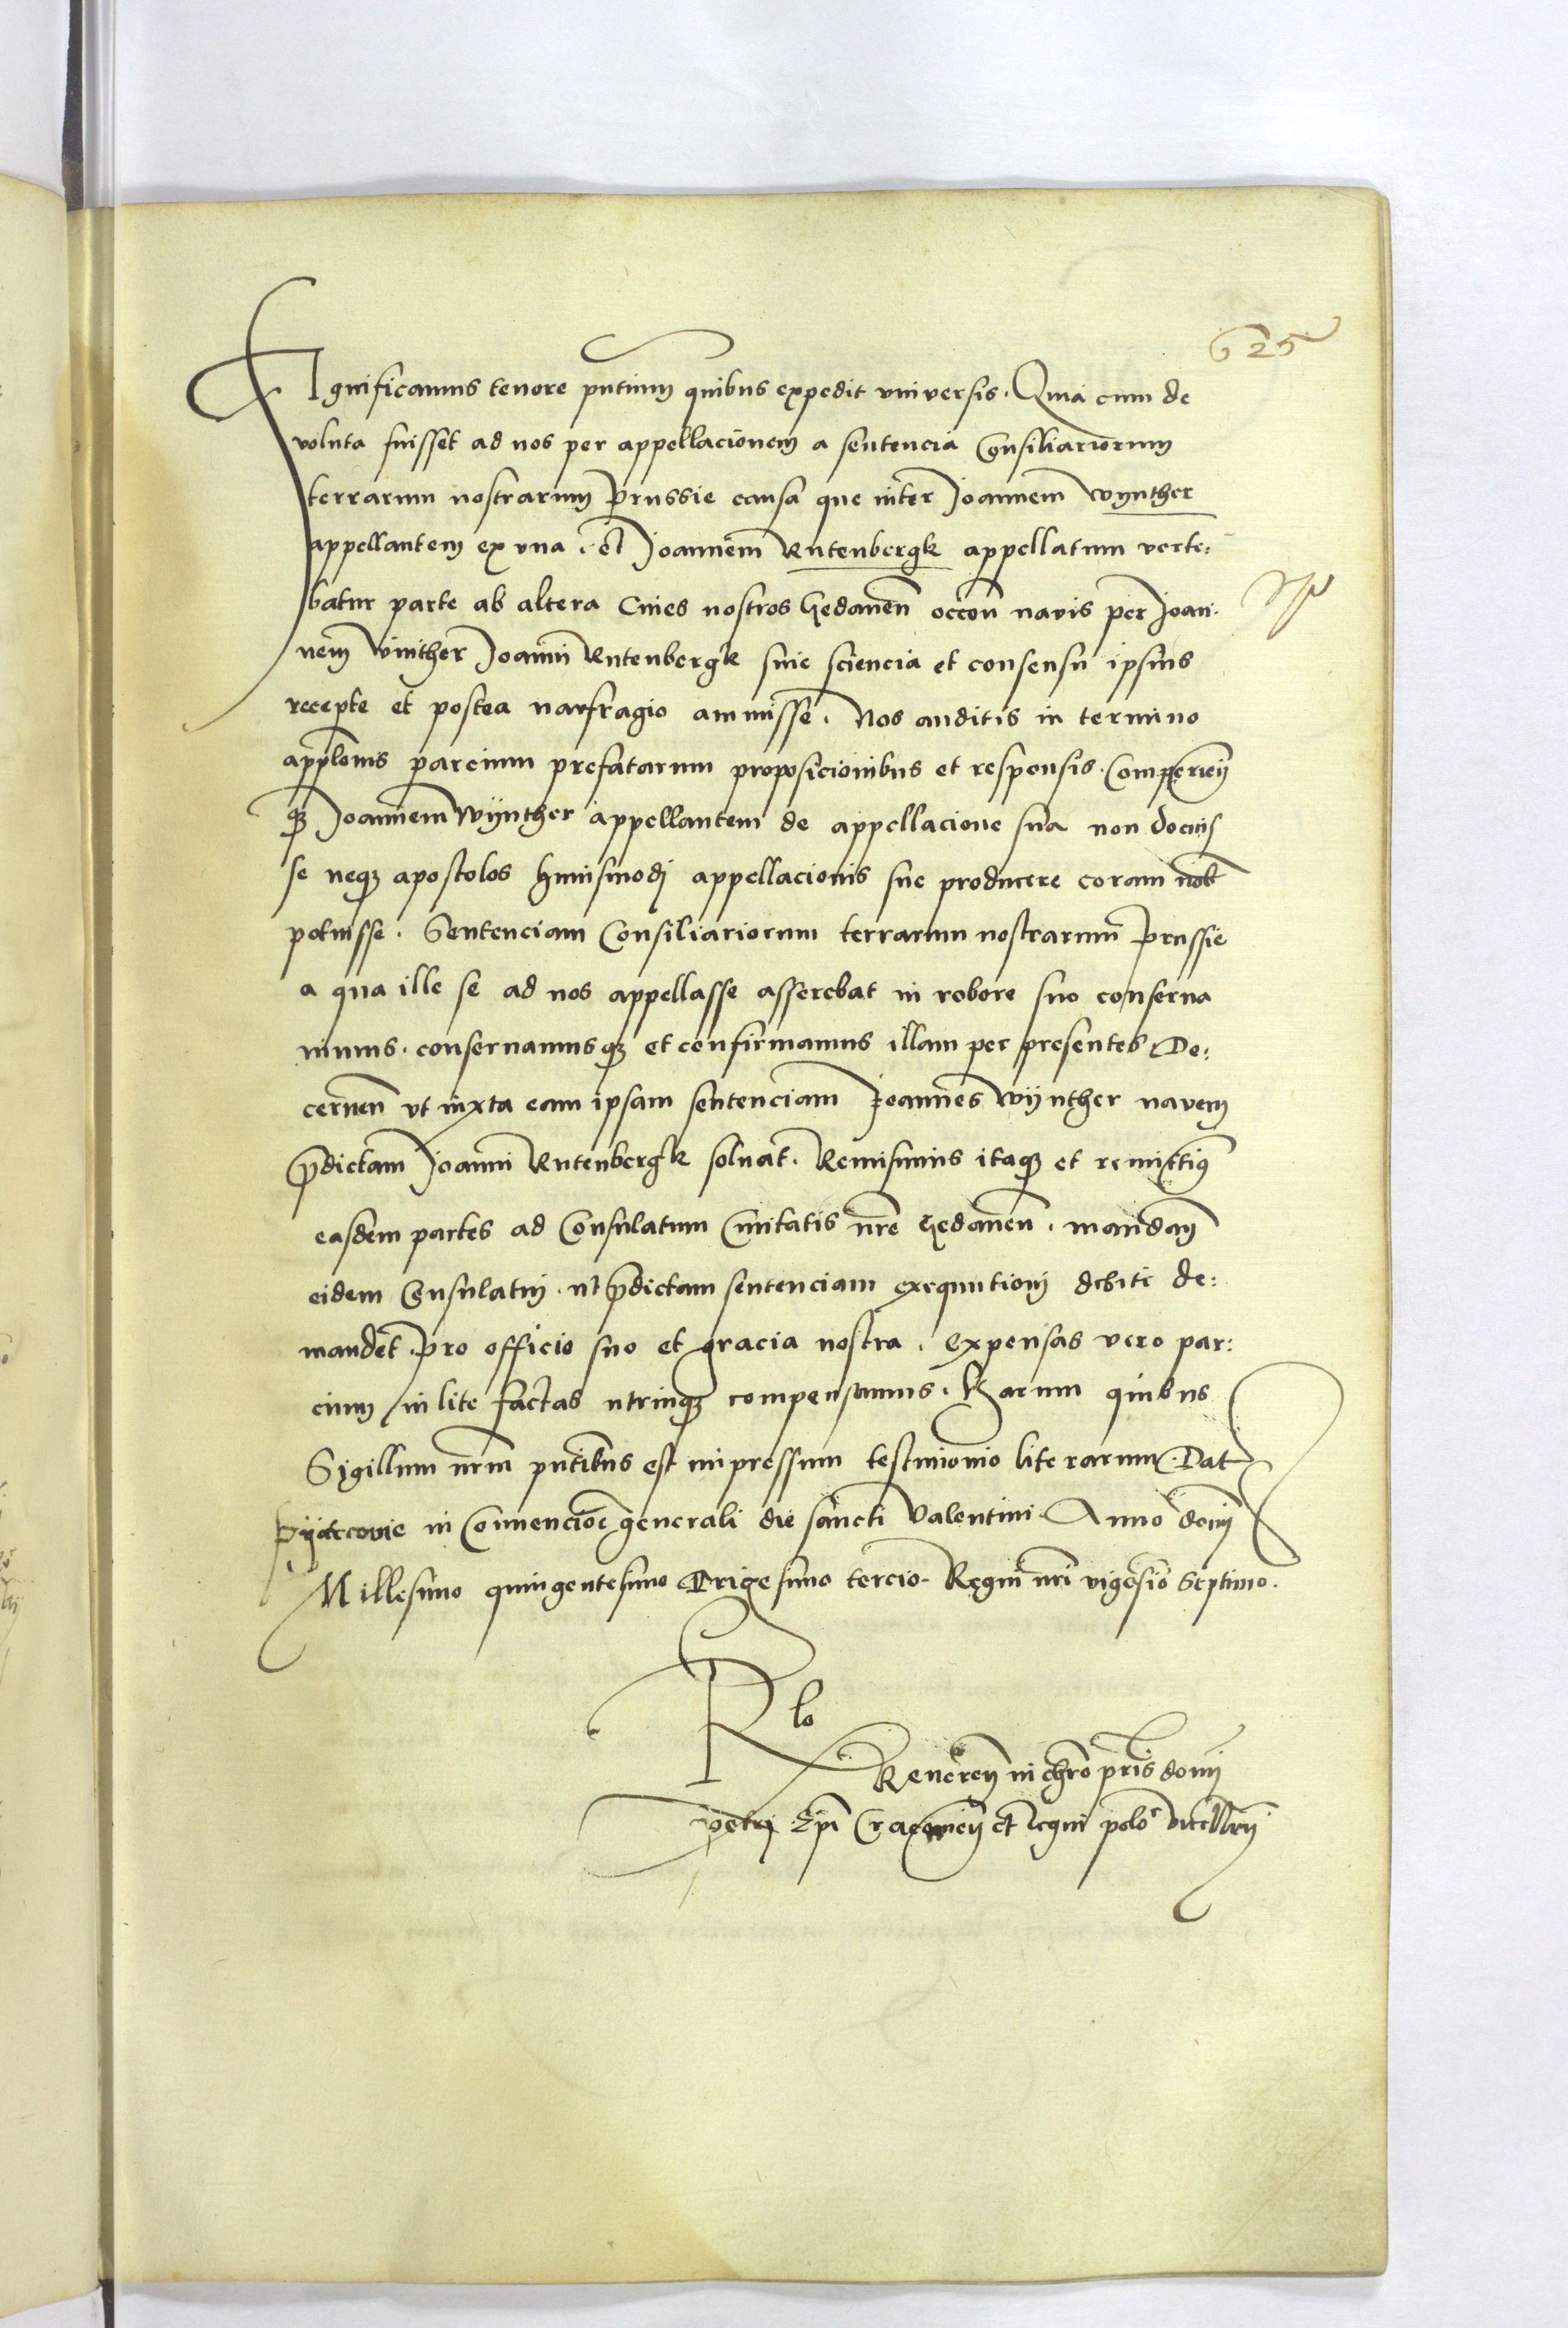 625
Significamus tenore pntium quibus expedit universis. Quia cum de
voluta fuisset ad nos per appellacionem a sentencia Consiliariorum
terrarum nostrarum Prussie causa que inter Joannem Wynther
appellantem ex una et Joannem Rutenbergk appellatum verte:
batur parte ab altera Cives nostros Gedanen occon navis per Joan.
nem Winther Joanni Rutenbergk sine sciencia et consensu ipsius
recepte et postea naufragio ammisse. Nos auditis in termino
applonis parcium prefatarum proposicionibus et responsis. Comperien
q3 Joannem Wynther appellantem de appellacione sua non docuis
se neq3 apostolos huiusmodi appellacionis sue producere coram nob
potuisse. Sentenciam Consiliariorum terrarum nostrarum Prussie
a qua ille se ad nos appellasse asserebat in robore suo conserva
vimus. conservamusq3 et confirmamus illam per presentes De:
cernen ut iuxta eam ipsam sentenciam Joannes Wynther navem
pdictam Joanni Rutenbergk solvat. Remisimus itaq3 et remittim9
easdem partes ad Consulatum Civitatis nre Gedanen. mandan
eidem Consulatui. ut pdictam sentenciam exequutioni debite de:
mandet. pro officio suo et gracia nostra. expensas vero par:
cium in lite factas utrinq3 compensamus. Harum quibus
Sigillum nrm pntibus est impressum testimonio literarum. Dat
Pyotrcovie in Convencioe generali die sancti Valentini. Anno domi
Millesimo quingentesimo Trigesimo tercio. Regni nri vigesio Septimo.
Rlo
Reveren in chro pris domi
Petri Epi Cracovien et Regni polo vicecllrii